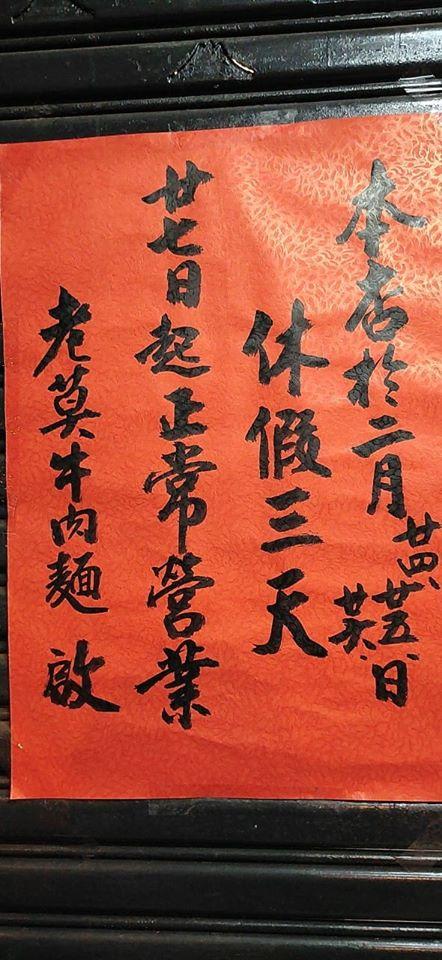 本店於二月廿四、廿五、廿六日
休假三天
廿七日起正常營業
老莫牛肉麵 啟